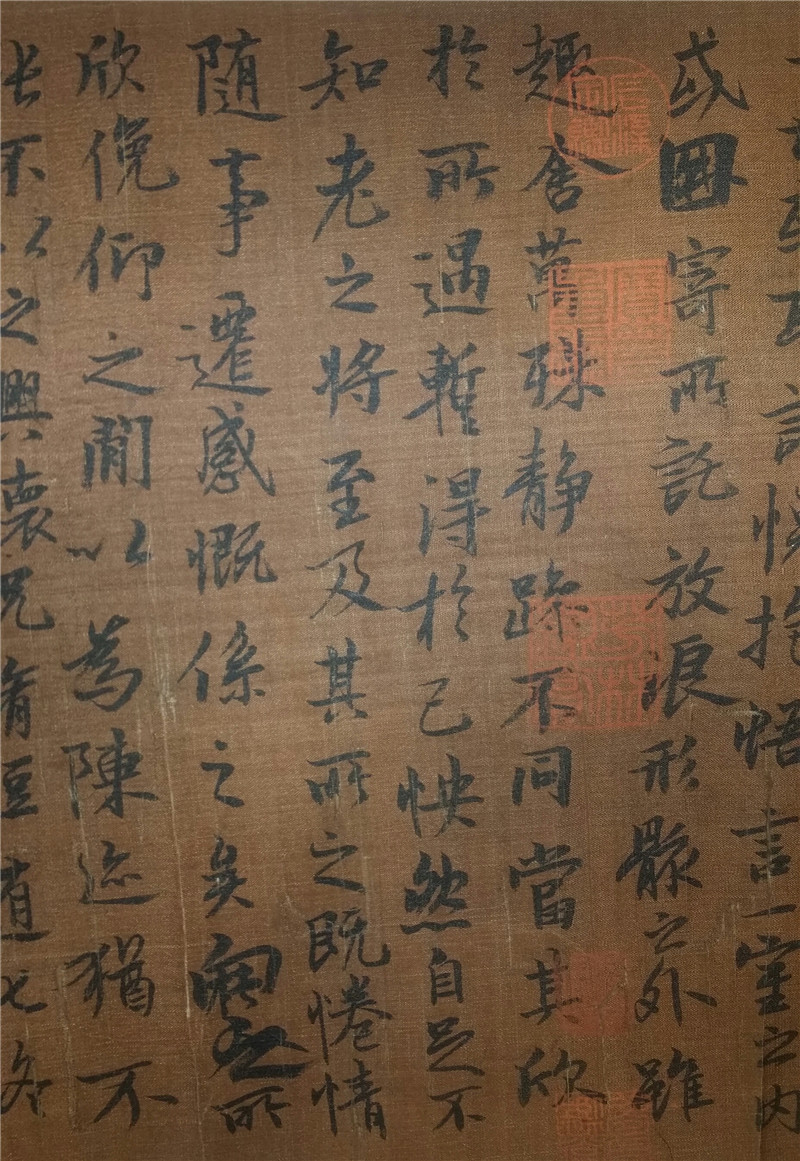 取諸懷抱悟言一室之内
或因寄所託放浪形骸之外雖
趣舍萬殊静躁不同當其欣
於所遇暫得於己怏然自足不
知老之將至及其所之既惓情
随事遷感慨係之矣向之所
欣俛仰之閒以為陳迹猶不
能不以之興懷况脩短随化終